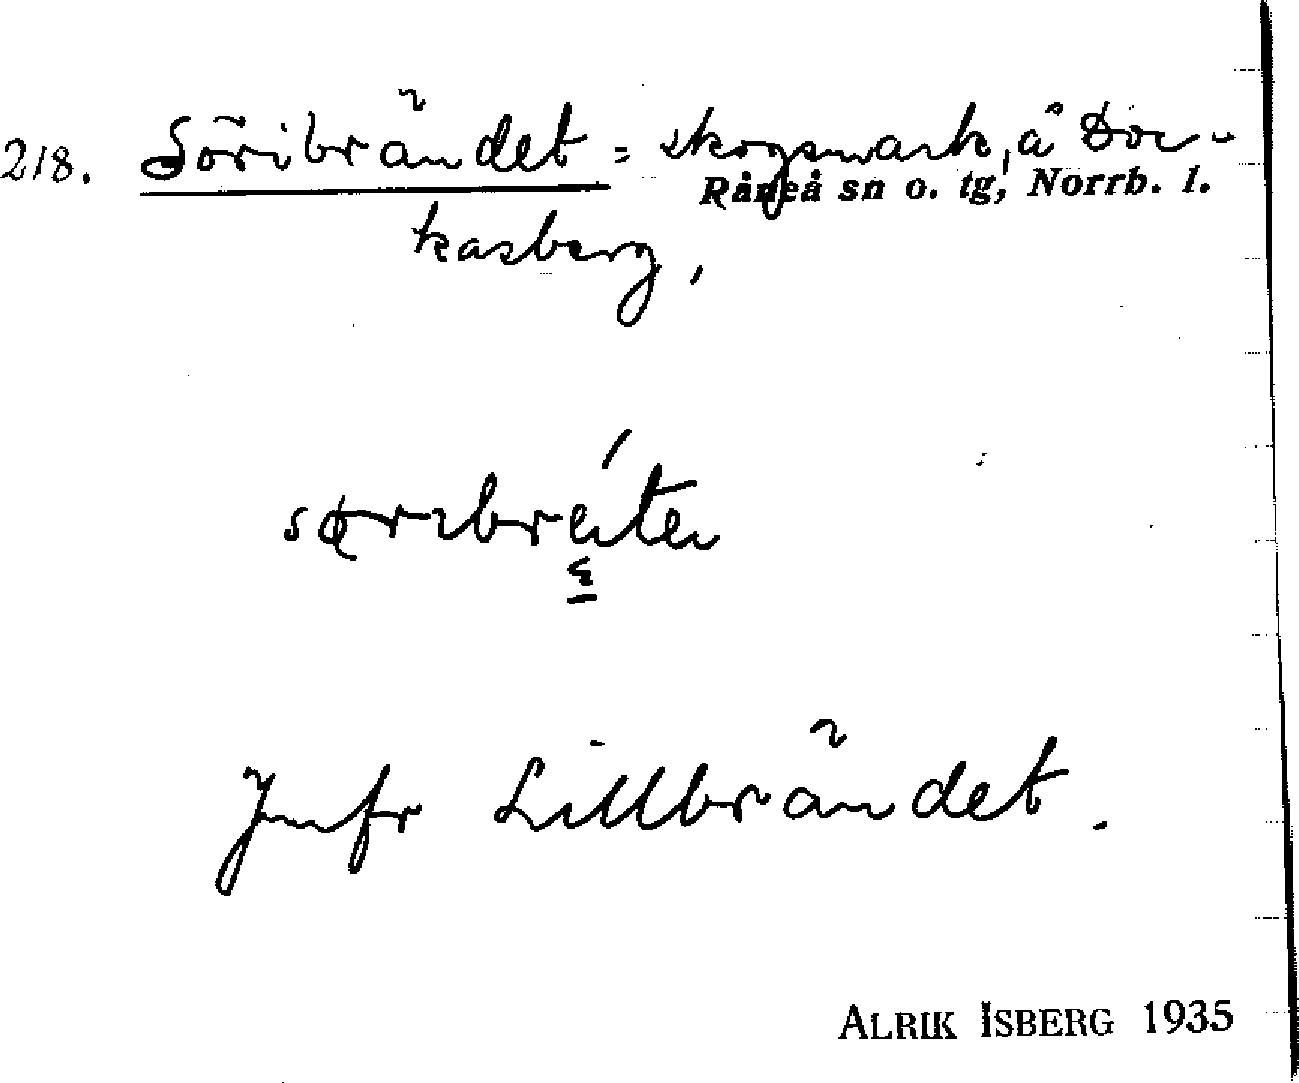 218. Söribrändet = skogsmark, å Doc-
Råneå sn o. tg, Norrb. l.
kasberg,
Jmfr Lillbrändet.
ALRIK ISBERG 1935